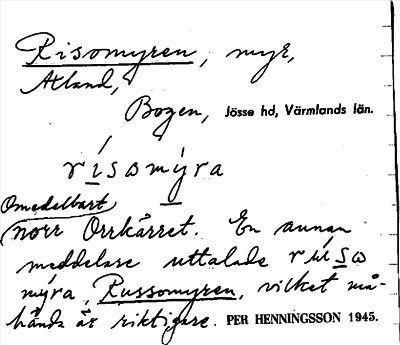 Risomyren, myr,
Älland,
Bogen, Jösse hd, Värmlands län.
rísωmỳra
Omedelbart
norr Orrkärret. En annan
meddelare uttalade rúsω
mýra, Russomyren, vilket må-
hända är riktigare. PER HENNINGSSON 1945.